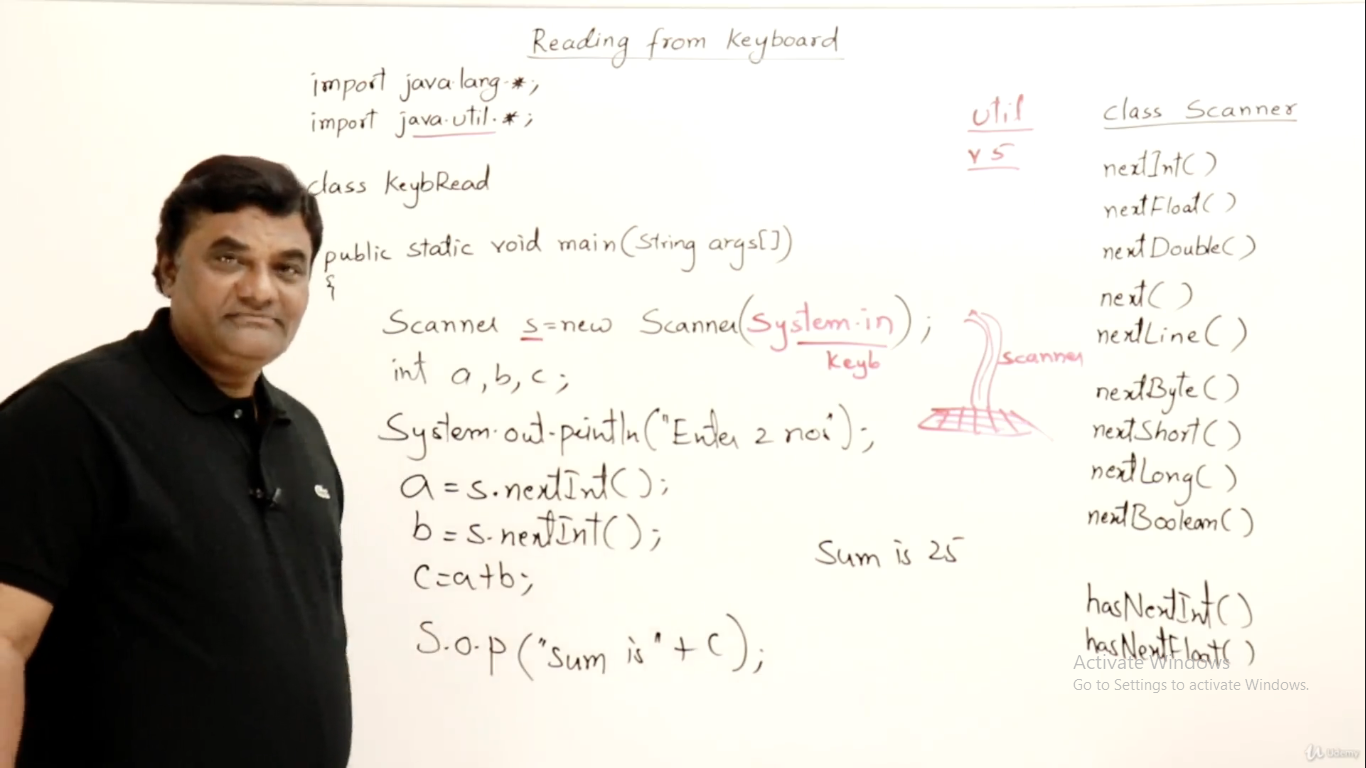 Reading from Keyboard
import java.lang.*;
import java.util.*;
class KeybRead
public static void main(String args[])
{
Scanner s=new Scanner(System.in);
Keyb
int a,b,c;
System.out.println("Enter 2 nos");
a=s.nextInt();
b=s.nextInt();
c=a+b;
S.o.p("Sum is"+c);
util
v5
scanner
Sum is 25
class Scanner
nextInt()
nextFloat()
nextDouble()
next()
nextLine()
nextByte()
nextShort()
nextLong()
nextBoolean()
hasNextInt()
hasNextFloat()
Activate Windows
Go to Settings to activate Windows.
Udemy